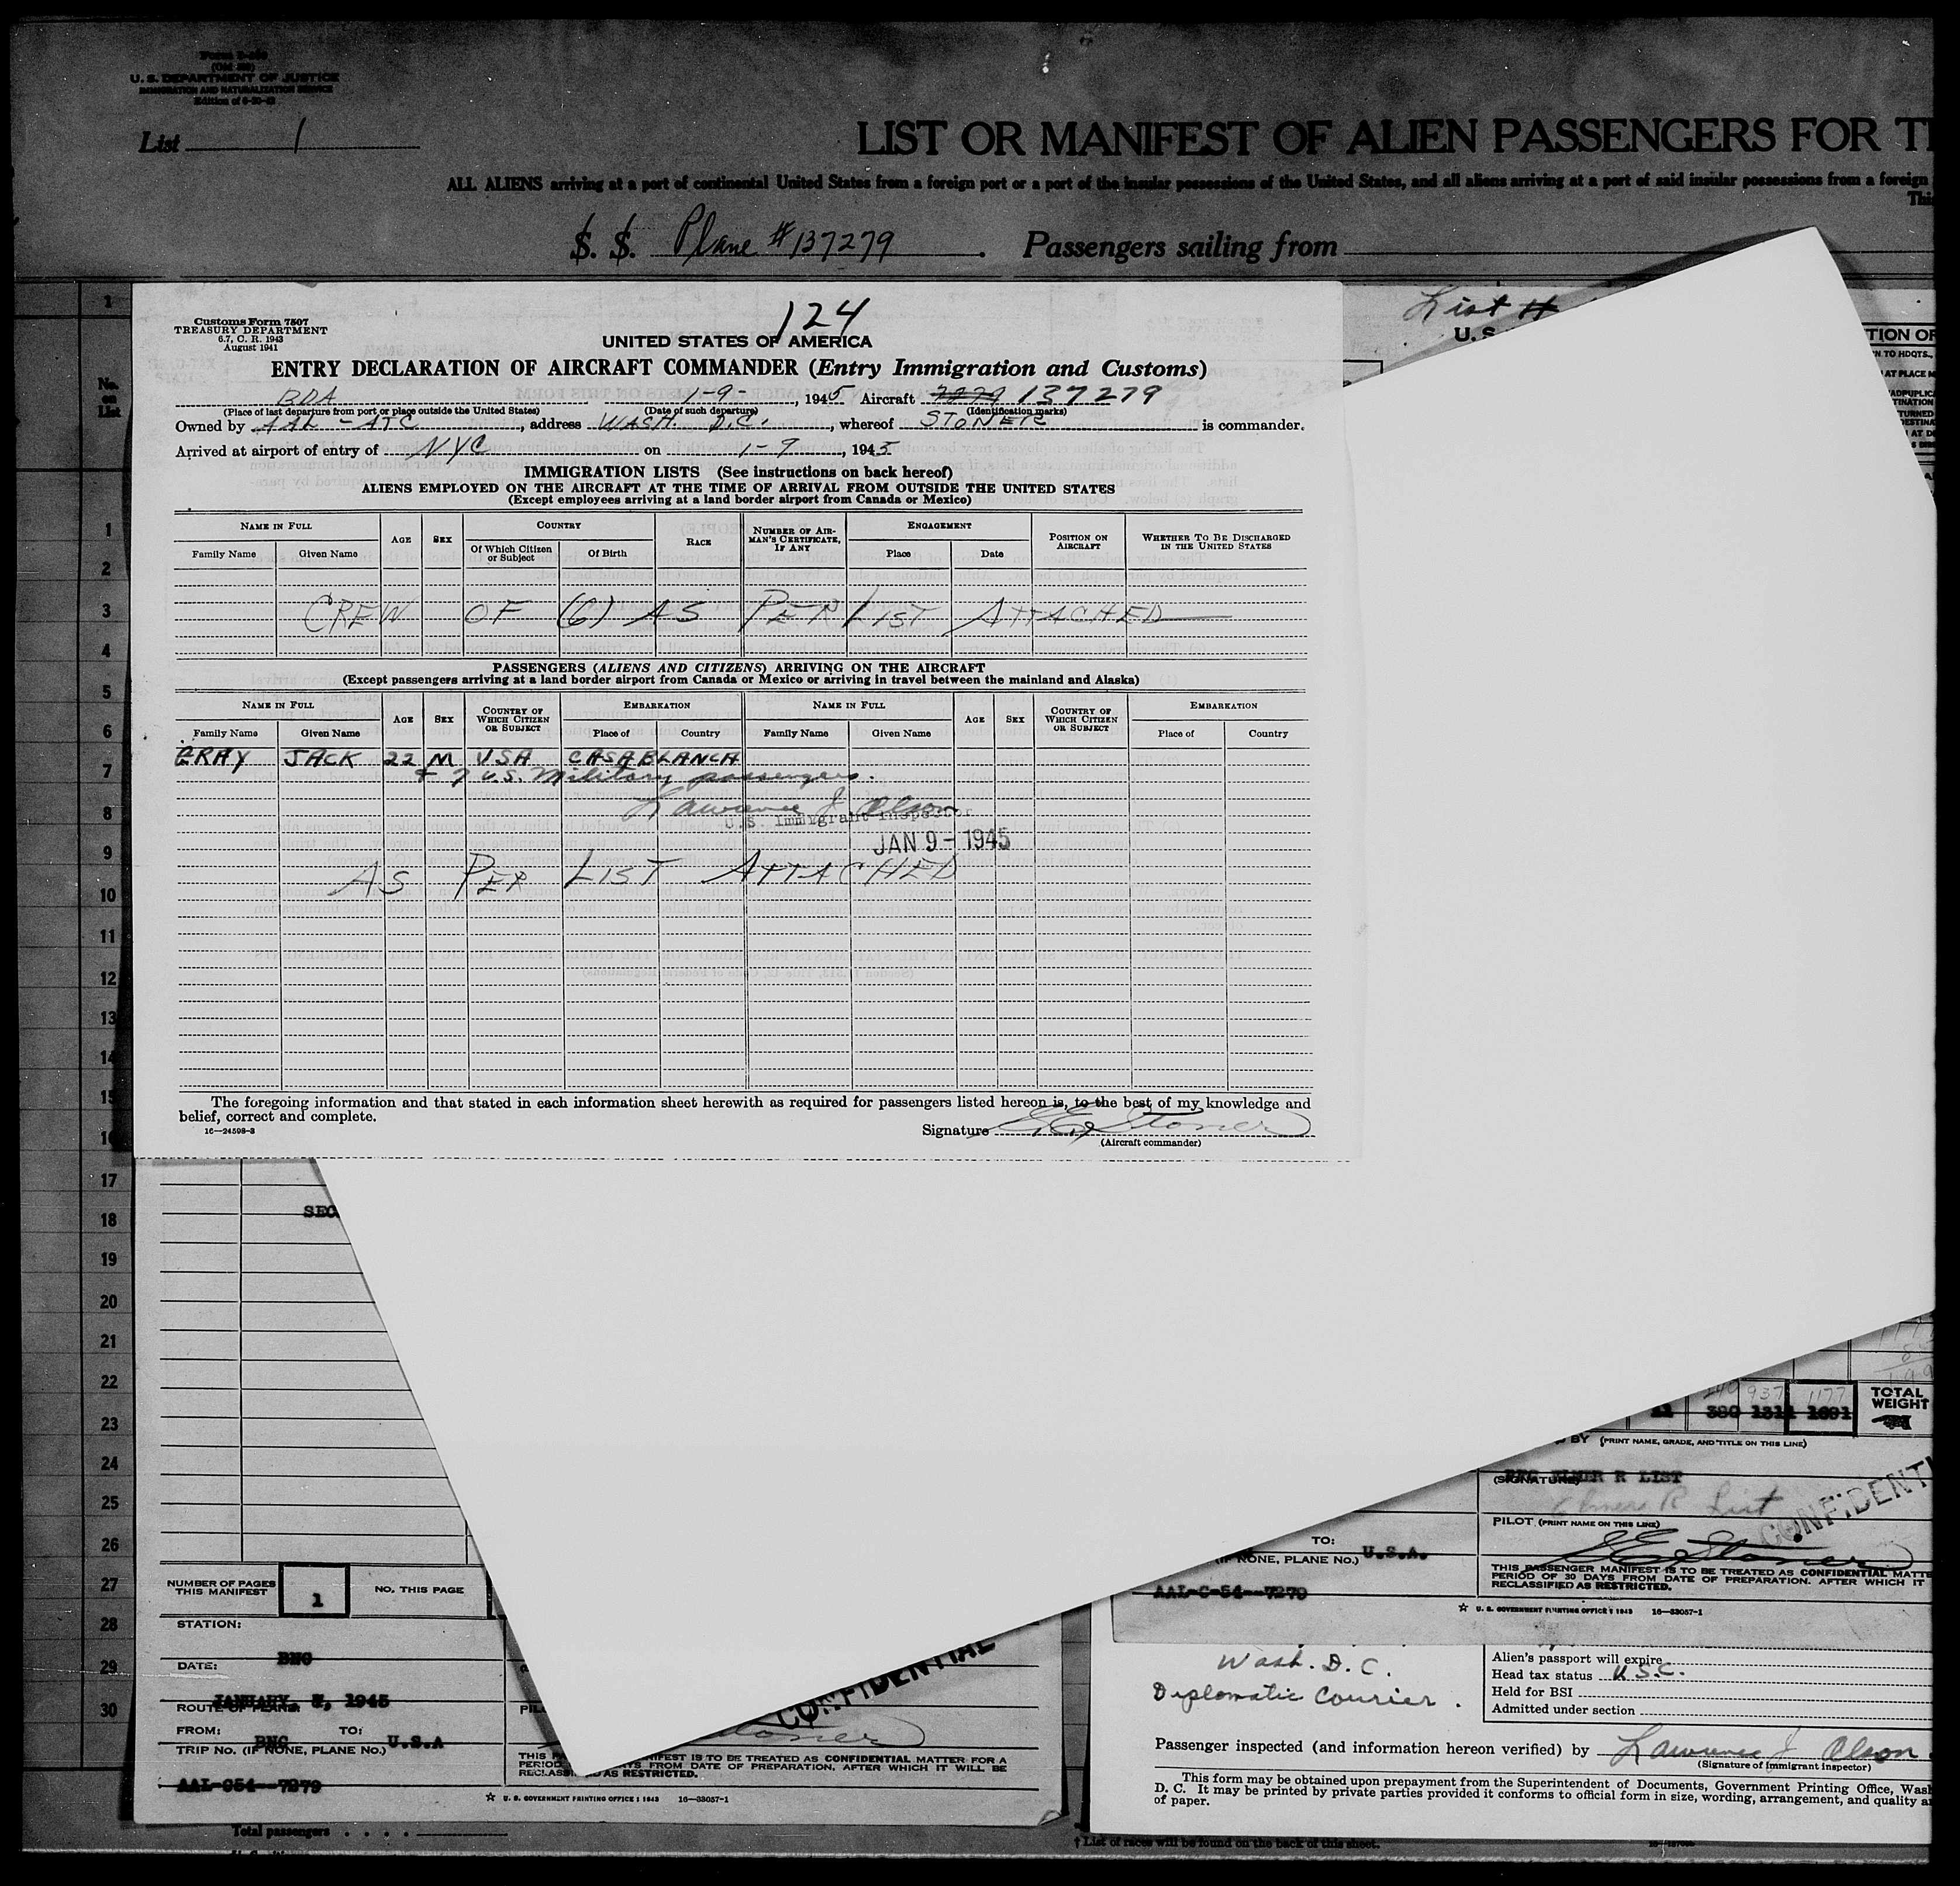 Form I-
U. S. DEPARTMENT OF JUSTICE
IMMIGRATION AND NATURALIZATION SERVICE
Edition of
List 1
LIST OR MANIFEST OF ALIEN PASSENGERS FOR T
ALL ALIENS arriving at a port of continental United States from a foreign port or a port of the insular possessions of the United States, and all aliens arriving at a port of said insular possessions from a foreign
Thi
S. S. Plane #137279. Passengers sailing from
No. on List
List #
U. S.
Customs Form 7507
TREASURY DEPARTMENT
6.7, C. R. 1943
August 1941
124
UNITED STATES OF AMERICA
ENTRY DECLARATION OF AIRCRAFT COMMANDER (Entry Immigration and Customs)
BDA 1-9-, 1945 Aircraft 7279 137279
(Place of last departure from port or place outside the United States) (Date of such departure) (Identification marks)
Owned by AAL - ATC, address WASH. D.C., whereof STONER is commander.
Arrived at airport of entry of NYC on 1-9, 1945
IMMIGRATION LISTS (See instructions on back hereof)
ALIENS EMPLOYED ON THE AIRCRAFT AT THE TIME OF ARRIVAL FROM OUTSIDE THE UNITED STATES
(Except employees arriving at a land border airport from Canada or Mexico)
NAME IN FULL AGE SEX COUNTRY RACE NUMBER OF AIRMAN'S CERTIFICATE, IF ANY ENGAGEMENT POSITION ON AIRCRAFT WHETHER TO BE DISCHARGED IN THE UNITED STATES
Family Name Given Name Of Which Citizen or Subject Of Birth Place Date
CREW OF (6) AS PER LIST ATTACHED
PASSENGERS (ALIENS AND CITIZENS) ARRIVING ON THE AIRCRAFT
(Except passengers arriving at a land border airport from Canada or Mexico or arriving in travel between the mainland and Alaska)
NAME IN FULL AGE SEX COUNTRY OF WHICH CITIZEN OR SUBJECT EMBARKATION NAME IN FULL AGE SEX COUNTRY OF WHICH CITIZEN OR SUBJECT EMBARKATION
Family Name Given Name Place of Country Family Name Given Name Place of Country
GRAY JACK 22 M USA CASABLANCA
+ 7 U.S. Military passengers.
Lawrence J Olson
U.S. Immigrant Inspector
JAN 9 - 1945
AS PER LIST ATTACHED
The foregoing information and that stated in each information sheet herewith as required for passengers listed hereon is, to the best of my knowledge and
belief, correct and complete.
16—24598-3
Signature Stoner
(Aircraft commander)
1
2
3
4
5
6
7
8
9
10
11
12
13
14
15
16
17
18
19
20
21
22
23
24
25
26
27
28
29
30
SEC
NUMBER OF PAGES THIS MANIFEST 1 NO. THIS PAGE
STATION:
BNG
DATE:
JANUARY, 1945
ROUTE OF PLANE:
FROM: BNG TO: U.S.A
TRIP No. (IF NONE, PLANE NO.)
AAL-C54--7279
CONFIDENTIAL
Stoner
THIS MANIFEST IS TO BE TREATED AS CONFIDENTIAL MATTER FOR A
PERIOD DAYS FROM DATE OF PREPARATION. AFTER WHICH IT WILL BE
RECLASSIFIED AS RESTRICTED.
☆ U. S. GOVERNMENT PRINTING OFFICE: 1943 16—33057-1
Total passengers
TION OF
TO HDQTS.,
AT PLACE
937 1177
11 380 1311 1691
TOTAL WEIGHT
BY (PRINT NAME, GRADE, AND TITLE ON THIS LINE)
ELMER R LIST
(SIGNATURE)
Elmer R List
CONFIDENTI
PILOT (PRINT NAME ON THIS LINE)
Stoner
THIS PASSENGER MANIFEST IS TO BE TREATED AS CONFIDENTIAL MATTE
PERIOD OF 30 DAYS FROM DATE OF PREPARATION. AFTER WHICH IT
RECLASSIFIED AS RESTRICTED.
☆ U. S. GOVERNMENT PRINTING OFFICE: 1943 16—33057-1
TO: U.S.A.
(IF NONE, PLANE NO.)
AAL-C-54--7279
Wash. D.C.
Diplomatic Courier.
Alien's passport will expire
Head tax status U.S.C.
Held for BSI
Admitted under section
Passenger inspected (and information hereon verified) by Lawrence J Olson
(Signature of immigrant inspector)
This form may be obtained upon prepayment from the Superintendent of Documents, Government Printing Office, Wash
D. C. It may be printed by private parties provided it conforms to official form in size, wording, arrangement, and quality a
of paper.
† List of races will be found on the back of this sheet.